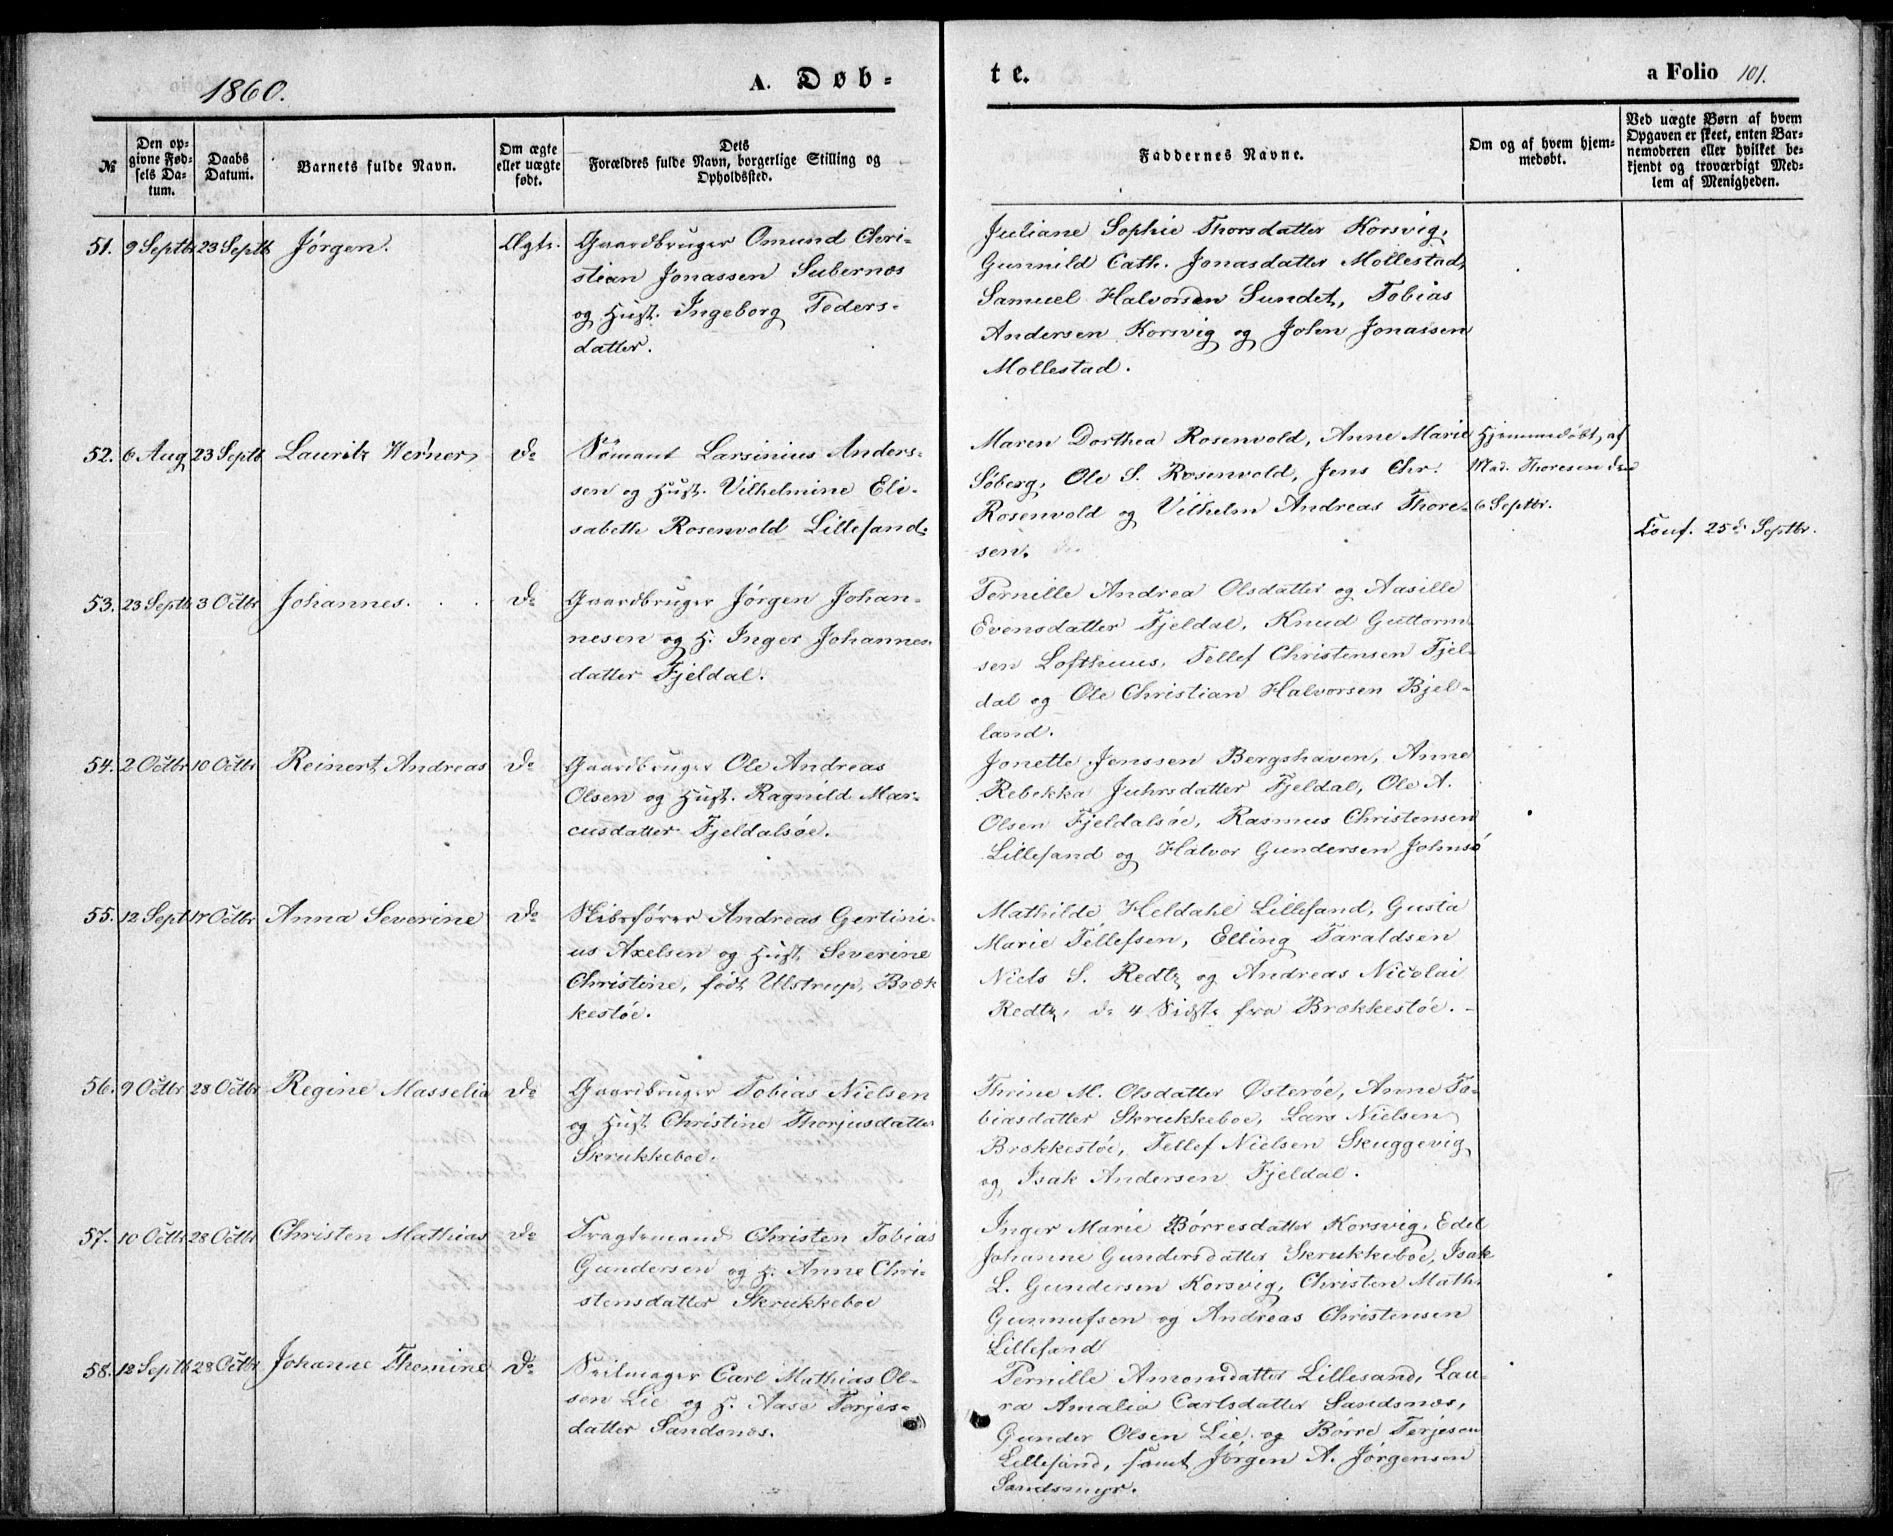 1860.
A. Døb-
te.
a Folio 101.
№
Den op-
givne Fød-
sels Da-
tum.
Daabs
Datum.
Barnets fulde Navn.
Om ægte
eller uægte
født.
Dets
Forældres fulde Navn, borgerlige Stilling og
Opholdssted.
Faddernes Navne.
Om og af hvem hjem-
medøbt.
Ved uægte Børn af hvem
Opgaven er skeet, enten Bar-
nemoderen eller hvilket be-
kjendt og troværdigt Med-
lem af Menigheden.
51. 9 Septbr 23 Septb Jørgen.
Gaardbruger Omund Chri-
stian Jonassen Subernæs
og Hust. Ingeborg Peders-
datter.
Juliane Sophie Thorsdatter Korsvig,
Gunnild Cath. Jonasdatter Mollestad,
Samuel Halvorsen Sundet, Tobias
Andersen Korsvig og John Jonassen
Mollestad.
52. 6 Aug 23 Septb Lauritz Werner, do
Sømand Larsinius Anders-
sen og Hust. Vilhelmine Eli-
sabeth Rosenvold Lillesand.
Maren Dorthea Rosenvold, Anne Marie
Søberg, Ole S. Rosenvold, Jens Chr.
Rosenvold og Vilhelm Andreas Thore-
sen.
Hjemmedøbt af
Mad. Thoresen den
6 Septbr.
Conf. 25de Septbr.
53. 23 Septb 3 Octbr Johannes. do
Gaardbruger Jørgen Johan-
nesen og H. Inger Johannes-
datter Fjeldal.
Pernille Andrea Olsdatter og Aasille
Evensdatter Fjeldal, Knud Guttorm-
sen Lofthuus, Tellef Christensen Fjel-
dal og Ole Christian Halvorsen Bjel-
land.
54. 2 Octbr 10 Octbr Reinert Andreas do
Gaardbruger Ole Andreas
Olsen og Hust. Ragnild Mar-
cusdatter Fjeldalsøe.
Jonette Jenssen Bergshaven, Anne
Rebekka Juhrsdatter Fjeldal, Ole A.
Olsen Fjeldalsøe, Rasmus Christensen
Lillesand og Halvor Gundersen
55. 12 Sept 17 Octbr Anna Severine do
Skibsfører Andreas Gertini-
us Axelsen og Hust. Severine
Christine, født Ulstrup, Bræk
kestøe.
Mathilde Heldahl Lillesand, Gusta
Marie Tellefsen, Elling Taraldsen
Niels S. Redtz og Andreas Nicolai
Redtz, de 4 Sidste fra Brækkestøe. -
56. 9 Octbr 28 Octbr Regine Masselia do
Gaardbruger Tobias Nielsen
og Hust Christine Thorjusdatter
Skrukkeboe.
Thrine M. Olsdatter Østerøe, Anne To-
biasdatter Skrukkeboe, Lars Nielsen
Brækkestøe, Tellef Nielsen Skuggevig
og Isak Andersen Fjeldal.
57. 10 Octbr 28 Octbr Christen Mathias do
Fragtemand Christen Tobias
Gundersen og H. Anne Chri-
stensdatter Skrukkeboe
Inger Marie Børresdatter Korsvig, Edel
Johanne Gundersdatter Skrukkeboe, Isak
L. Gundersen Korsvig, Christen Math.
Gunnufsen og Andreas Christensen
Lillesand
58. 12 Septb 28 Octbr Johanne Thomine do
Seilmager Carl Mathias Ol-
sen Lie og H. Aase Terjes-
datter Sandsnæs.
Pernille Amonsdatter Lillesand, Lau-
ra Amalia Carlsdatter Sandsnæs,
Gunder Olsen Lie og Børre Terjesen
Lillesand, samt Jørgen A. Jørgensen
Sandsmyr.